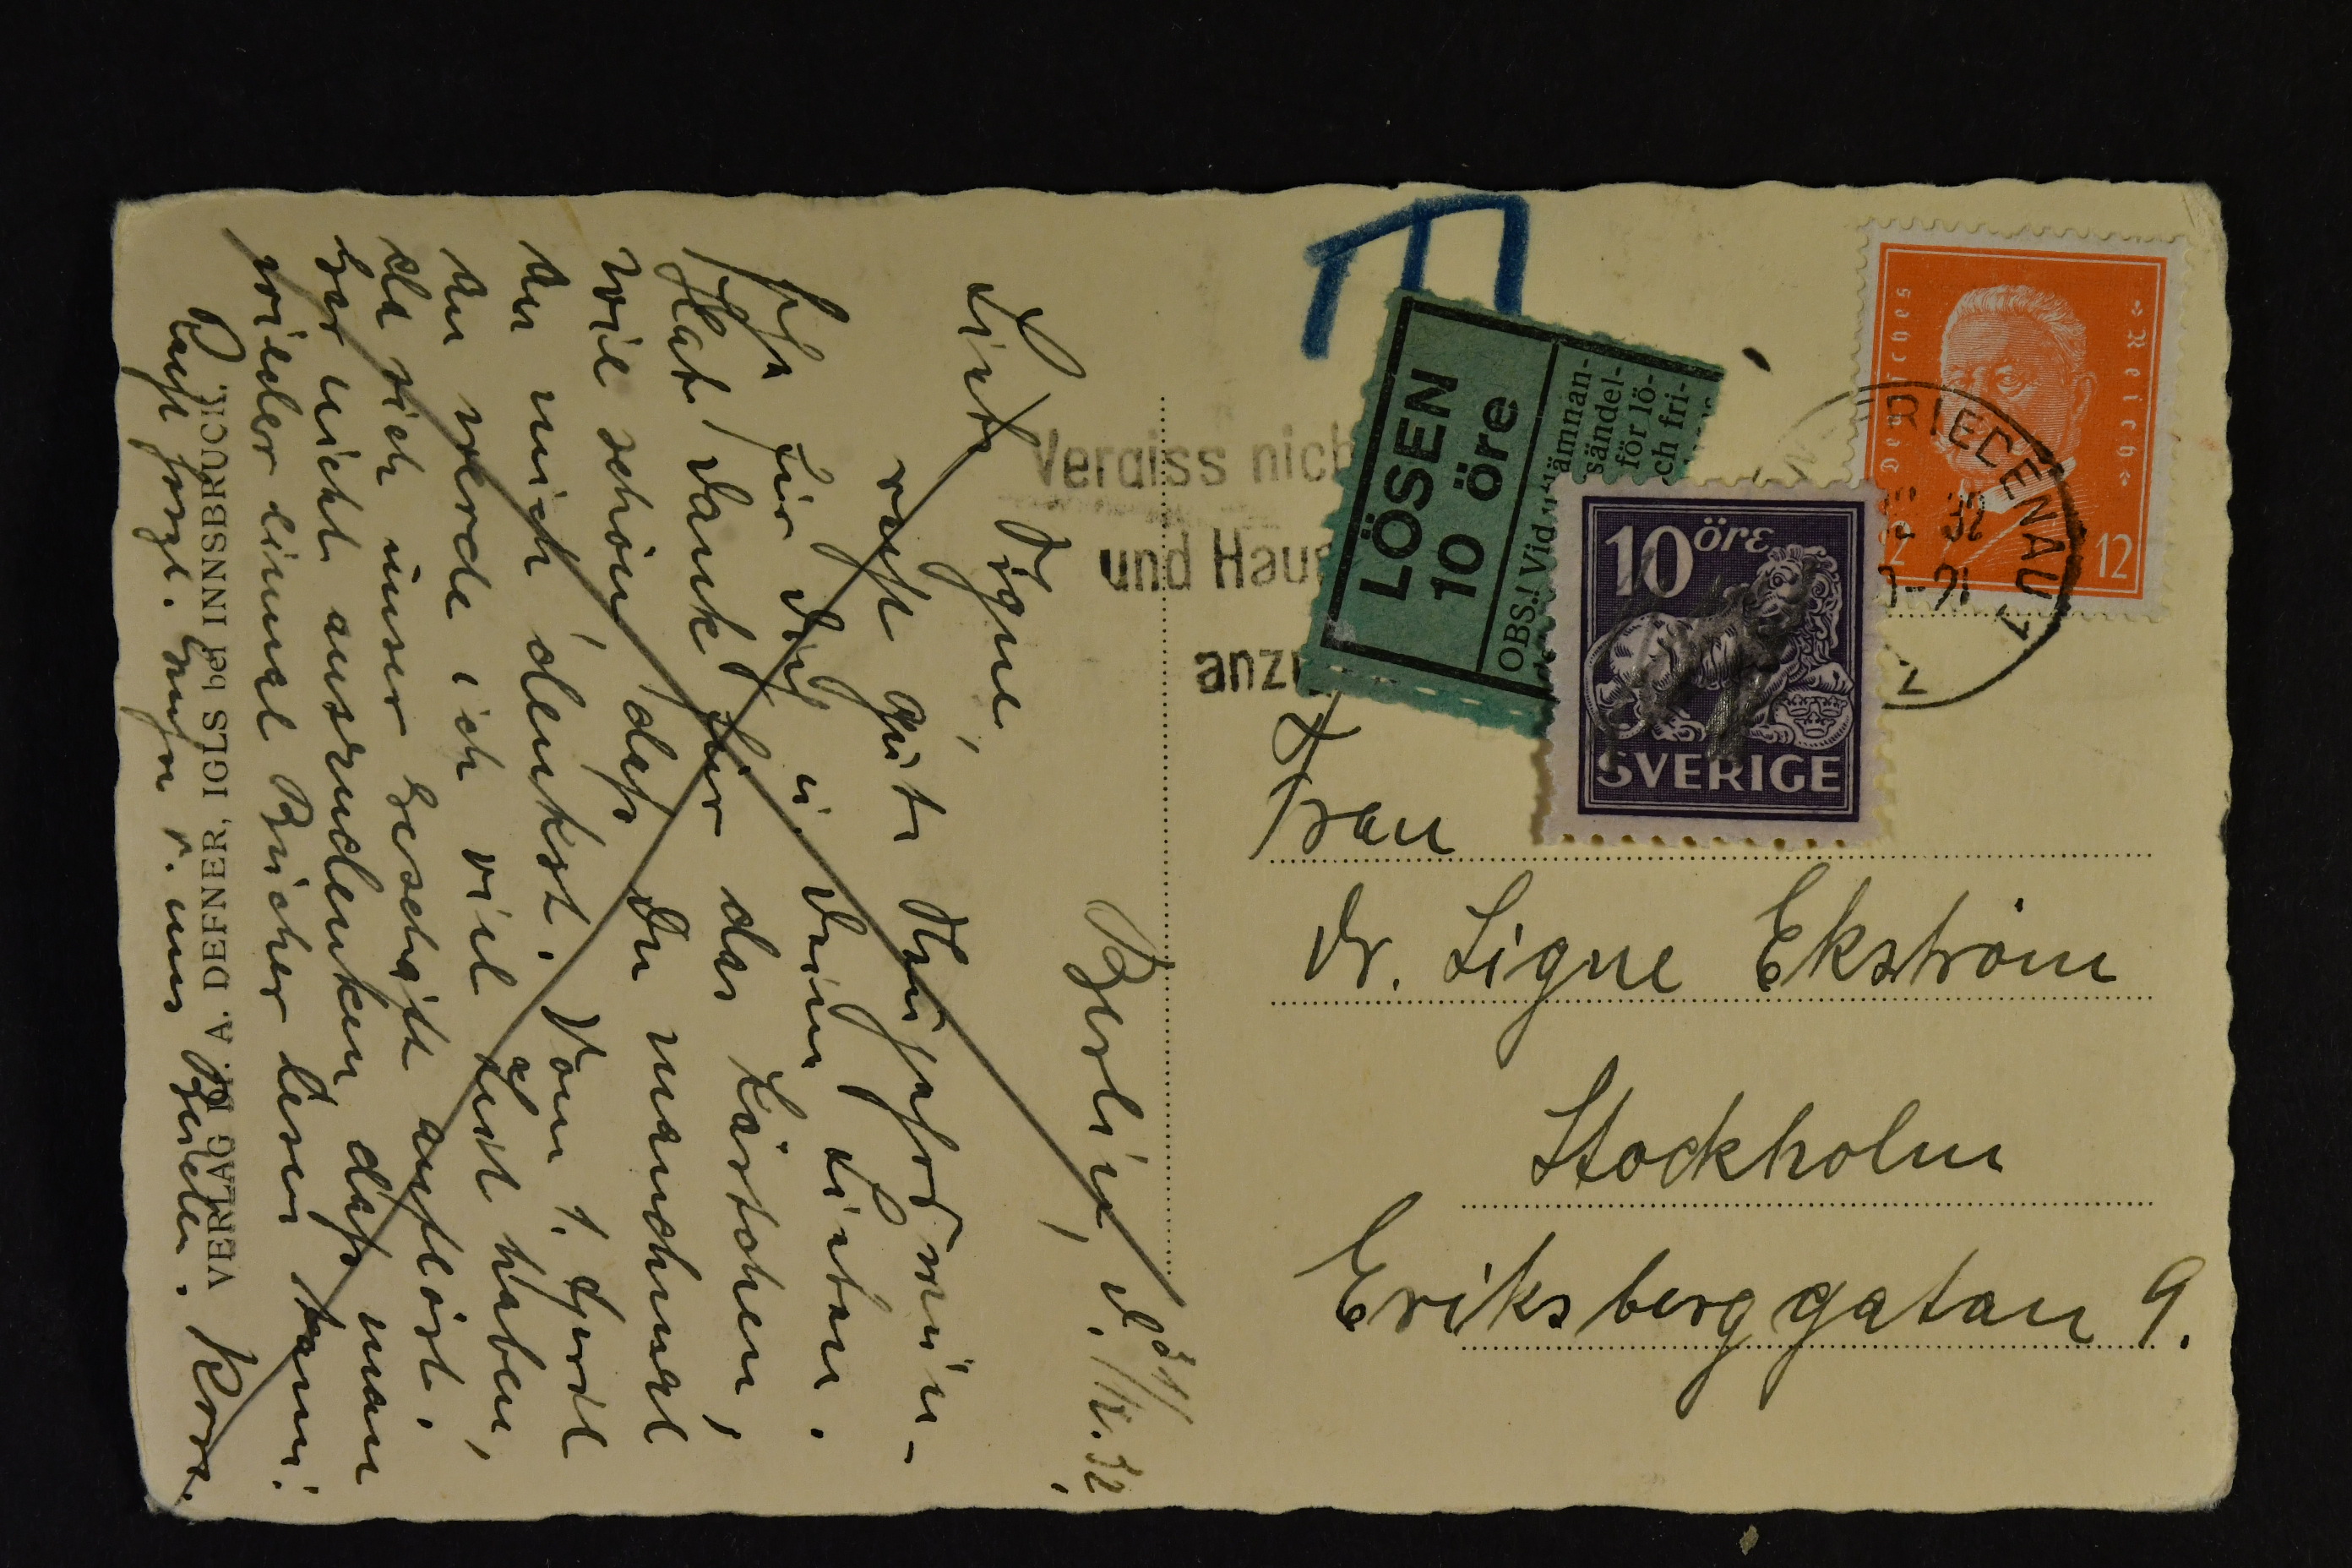 Berlin, d. 31/
Liebe Signe,
recht gute Neujahrswün-
sche für Dich u. Deine Lieben.
Hab Dank für das Kärtchen,
wie schön, daß Du manchmal
an mich denkst. Vom 1. April
an werde ich viel Zeit haben,
da sich unser Geschäft auflöst.
Gar nicht auszudenken daß man
wieder einmal Bücher lesen kann!
Recht herzl. Grüße v. uns Beiden.
VERLAG A. DEFNER, IGLS bei INNSBRUCK.
Vergiss nich
und Haus
anzu
LÖSEN
10 öre
OBS.! Vid
ämnan-
sändel-
för lö-
ch fri-
10 öre
SVERIGE
Deutsches
Reich
12
RIEDENAU
32
Frau
Dr. Signe Ekström
Stockholm
Eriksberggatan 9.